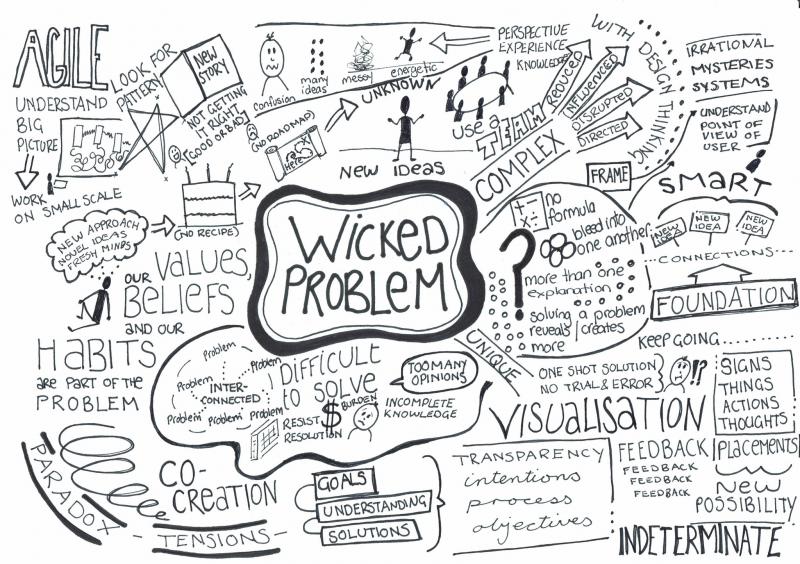 AGILE
UNDERSTAND
BIG
PICTURE
WORK
ON SMALL SCALE
LOOK FOR
PATTERN
NEW
STORY
NOT GETTING
IT RIGHT
(GOOD OR BAD)
confusion
many
ideas
messy
energetic
PERSPECTIVE
EXPERIENCE
KNOWLEDGE
UNKNOWN
(NO ROADMAP)
NEW IDEAS
use a
TEAM
COMPLEX
REDUCED
INFLUENCED
DISRUPTED
DIRECTED
WITH DESIGN THINKING
IRRATIONAL
MYSTERIES
SYSTEMS
UNDERSTAND
POINT OF
VIEW OF
USER
FRAME
SMART
NEW IDEA
NEW
IDEA
NEW
IDEA
CONNECTIONS
FOUNDATION
NEW APPROACH
NOVEL IDEAS
FRESH MINDS
(NO RECIPE)
OUR VALUES,
BELIEFS
AND OUR
HABITS
ARE PART OF THE
PROBLEM
WICKED
PROBLEM
no
formula
bleed into
one another
?
more than one
explanation
solving a problem
reveals/creates
more
UNIQUE
Problem
Problem
Problem
Problem
Problem
problem
INTER-
CONNECTED
DIFFICULT
to SOLVE
RESIST
RESOLUTION
$
BURDEN
TOO MANY
OPINIONS
INCOMPLETE
KNOWLEDGE
KEEP GOING
ONE SHOT SOLUTION
NO TRIAL & ERROR
!?
SIGNS
THINGS
ACTIONS
THOUGHTS
PLACEMENTS
NEW
POSSIBILITY
VISUALISATION
TRANSPARENCY
intentions
process
objectives
FEEDBACK
FEEDBACK
FEEDBACK
FEEDBACK
INDETERMINATE
PARADOX
CO-
CREATION
- TENSIONS -
GOALS
UNDERSTANDING
SOLUTIONS